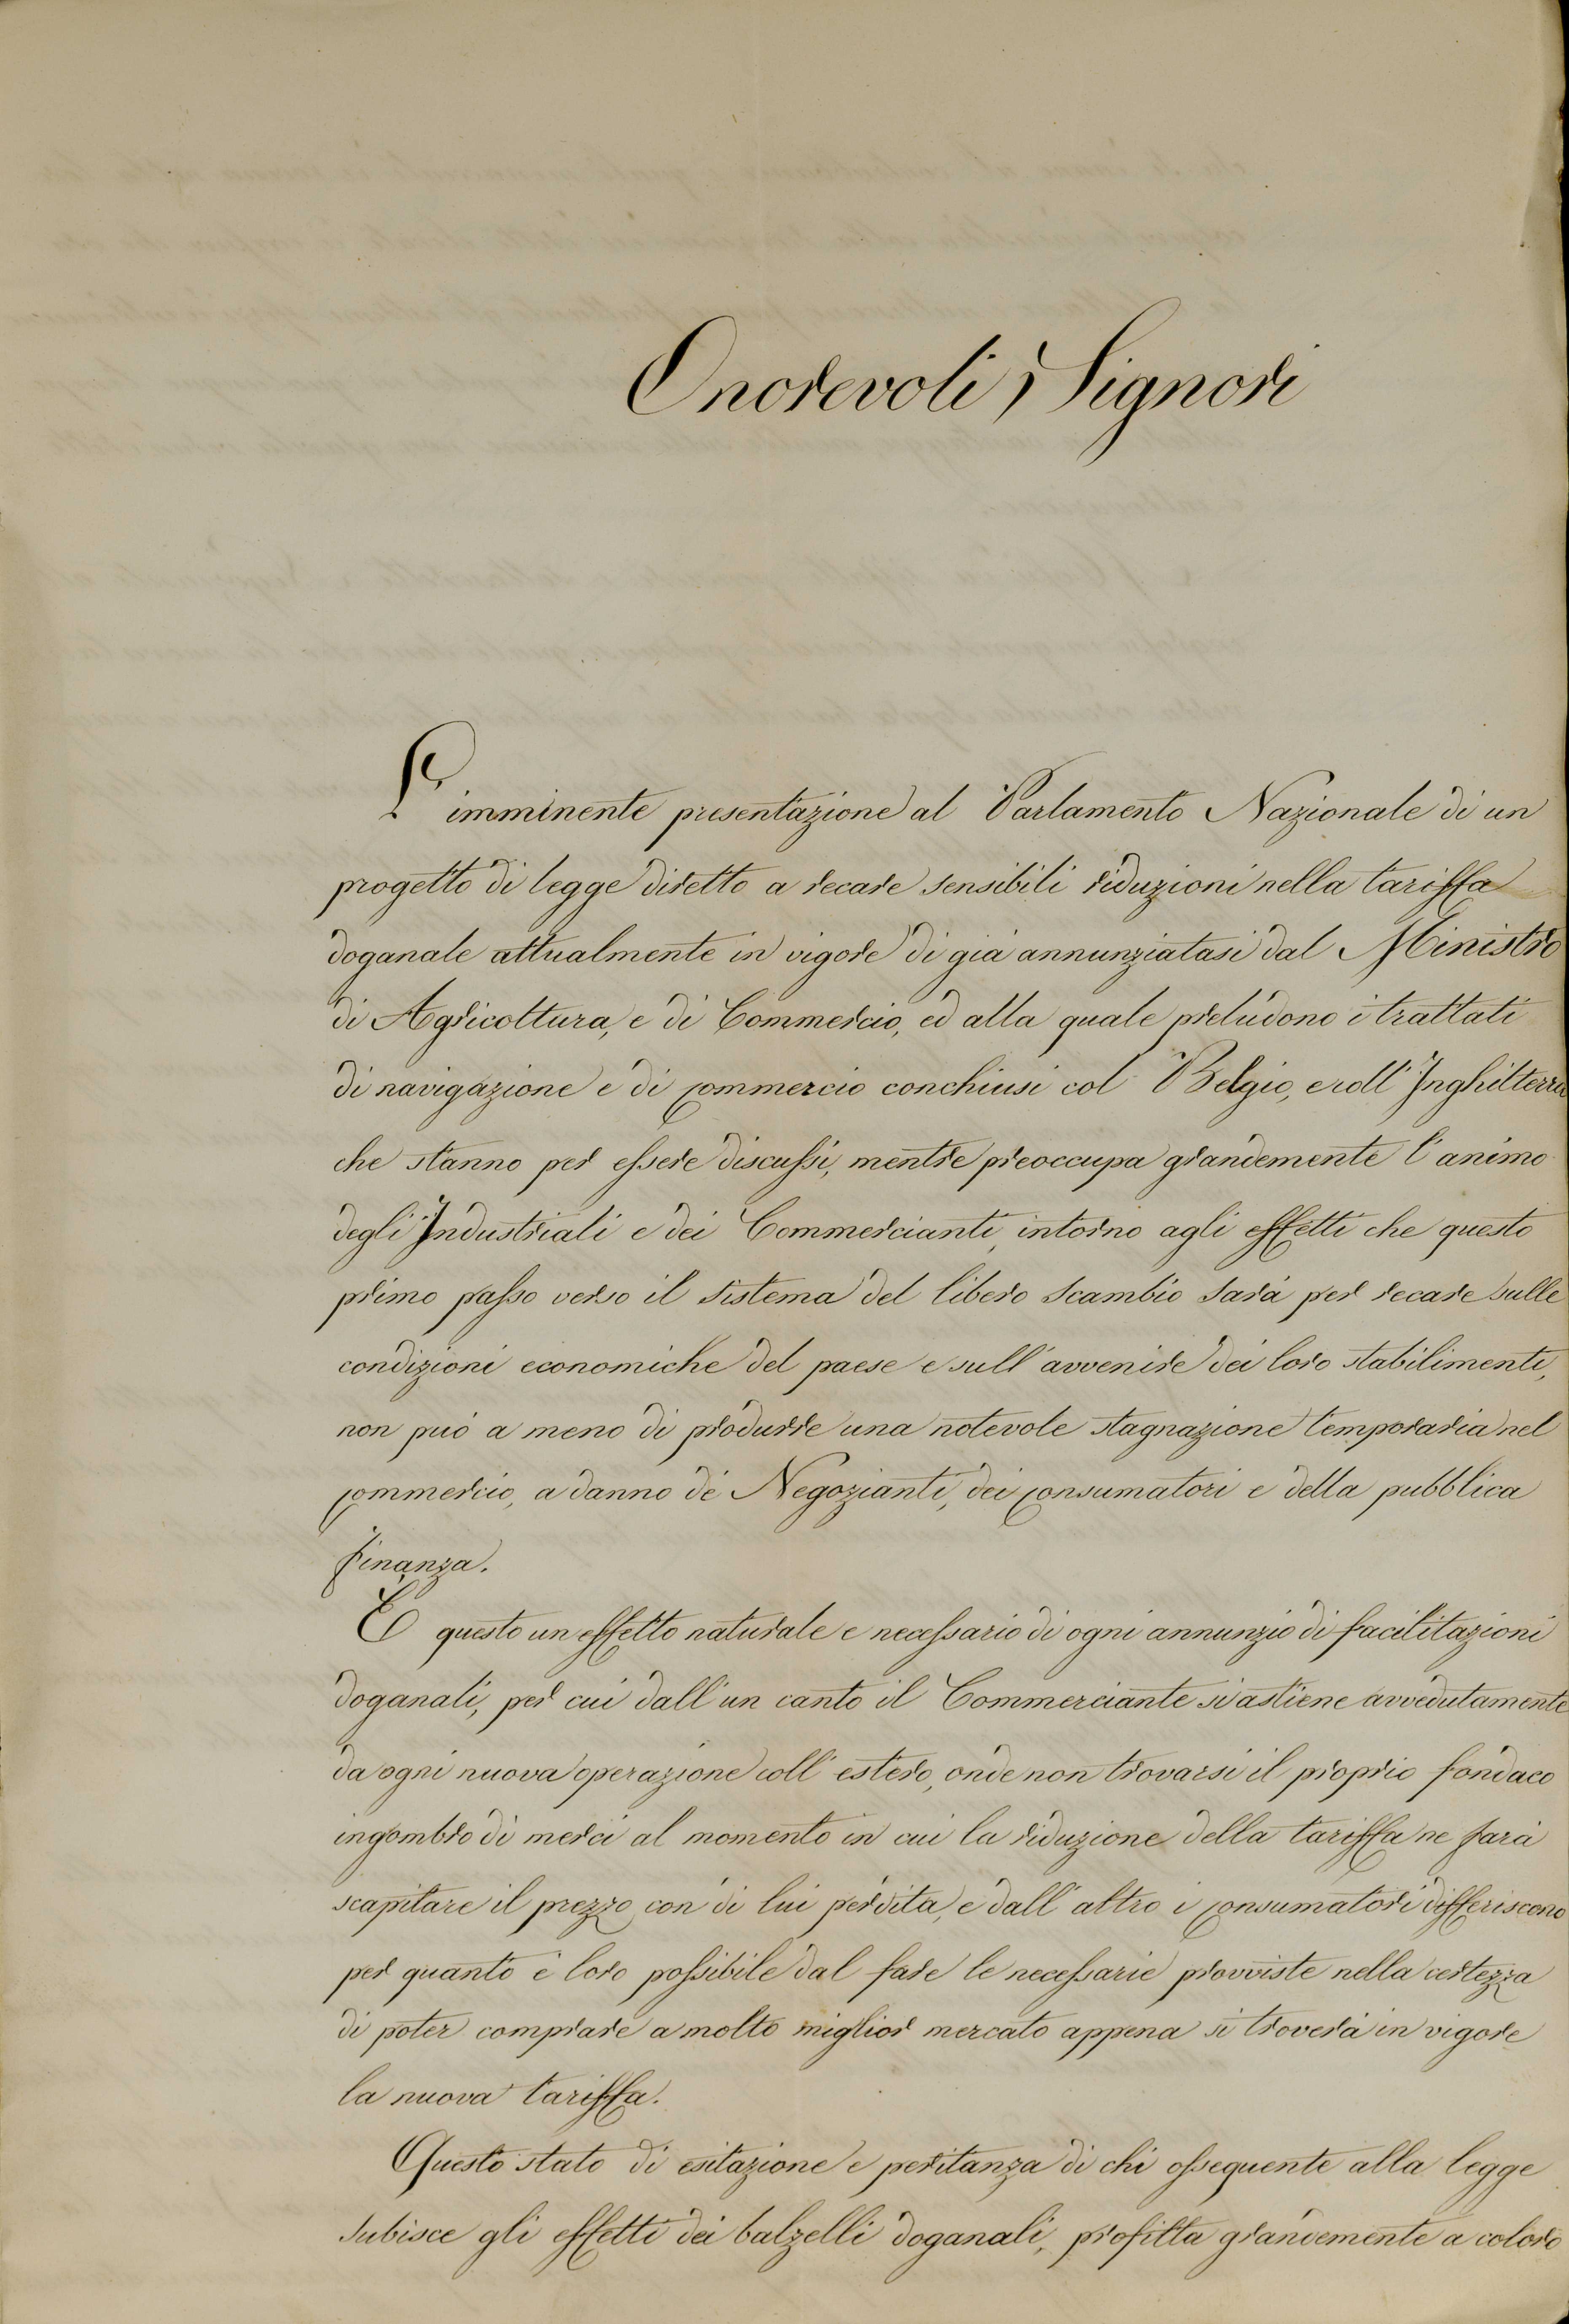 Onorevoli Signori
L'imminente presentazione al Parlamento Nazionale di un
progetto di legge diretto a recare sensibili riduzioni nella tariffa
doganale attualmente in vigore di già annunziatasi dal Ministro
di Agricoltura, e di Commercio, ed alla quale preludono i trattati
di navigazione e di commercio conchiusi col Belgio, e coll'Inghilterra
che stanno per essere discussi, mentre preoccupa grandemente l'animo
degli Industriali e dei Commercianti, intorno agli effetti che questo
primo passo verso il sistema del libero scambio sarà per recare sulle
condizioni economiche del paese e sull'avvenire dei loro stabilimenti,
non può a meno di produrre una notevole stagnazione temporaria nel
commercio, a danno de' Negozianti, dei consumatori e della pubblica
finanza.
È questo un effetto naturale e necessario di ogni annunzio di facilitazioni
doganali, per cui dall'un canto il Commerciante si astiene avvedutamente
da ogni nuova operazione coll'estero, onde non trovarsi il proprio fondaco
ingombro di merci al momento in cui la riduzione della tariffa ne farà
scapitare il prezzo con di lui perdita, e dall'altro i consumatori differiscono
per quanto è loro possibile dal fare le necessarie provviste nella certezza
di poter comprare a molto miglior mercato appena si troverà in vigore
la nuova tariffa.
Questo stato di esitazione e peritanza di chi ossequente alla legge
subisce gli effetti dei balzelli doganali, profitta grandemente a coloro